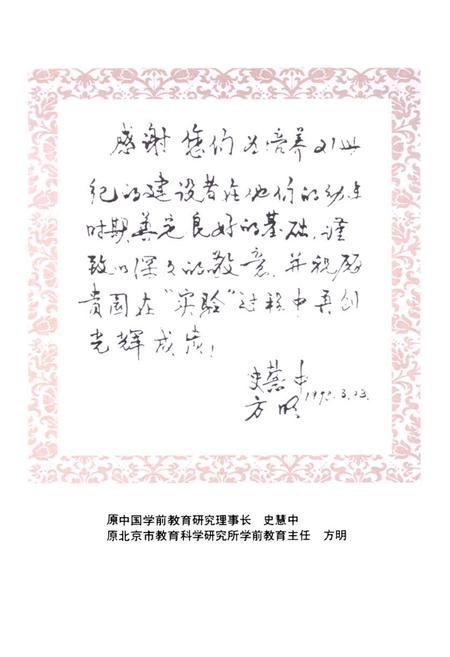 感谢您们为培养21世
纪的建设者在他们的幼年
时期奠定良好的基础,谨
致以深深的敬意,并祝愿
贵园在“实验”过程中再创
光辉成绩!
史慧中
方明
原中国学前教育研究理事长 史慧中
原北京市教育科学研究所学前教育主任 方明